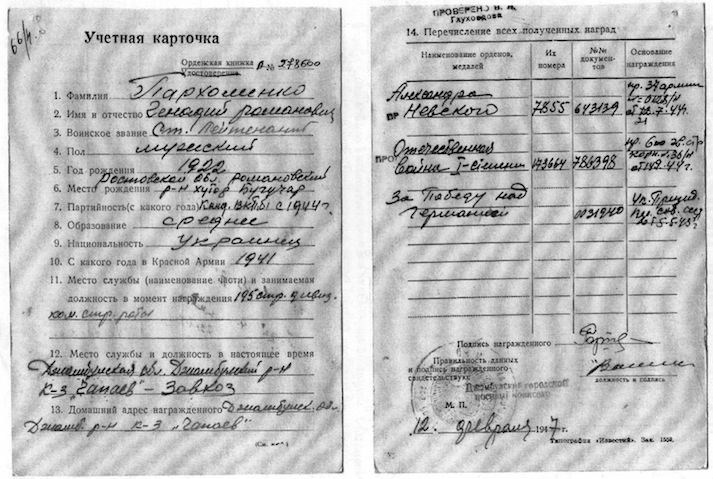 Учетная карточка
Орденская книжка А № 278600
Удостоверение
1. Фамилия Пархоменко
2. Имя и отчество Генадий Романович
3. Воинское звание Ст. Лейтенант
4. Пол мужский
5. Год рождения 1922
Ростовской обл. Романовский
6. Место рождения р-н хутор Бугучар
7. Партийность (с какого года) Канд. ВКП(б) с 1944 г.
8. Образование среднее
9. Национальность Украинец
10. С какого года в Красной Армии 1941
11. Место службы (наименование части) и занимаемая
должность в момент награждения 195 стр. дивиз.
ком. стр. роты
12. Место службы и должность в настоящее время
Джамбулская обл. Джамбулский р-н
к-з "Чапаев" - Завхоз
13. Домашний адрес награжденного Джамбулск. обл.
Джамб. р-н к-з "Чапаев"
ПРОВЕРЕНО
Глуховцова
14. Перечисление всех полученных наград
Наименование орденов, медалей
Их номера
№№ документов
Основание награждения
Александра
Невского 7855 643139
пр. 37 армии
Отечественная
война I-степени 173664 786398
За Победу над
Германией 0031940
Ук. Презид.
Подпись награжденного
Правильность данных
и подпись награжденного
свидетельствую:
должность и подпись
Джамбулский городской
военный комиссар
М. П.
12. февраля 1947 г.
Типография «Известий». Зак.